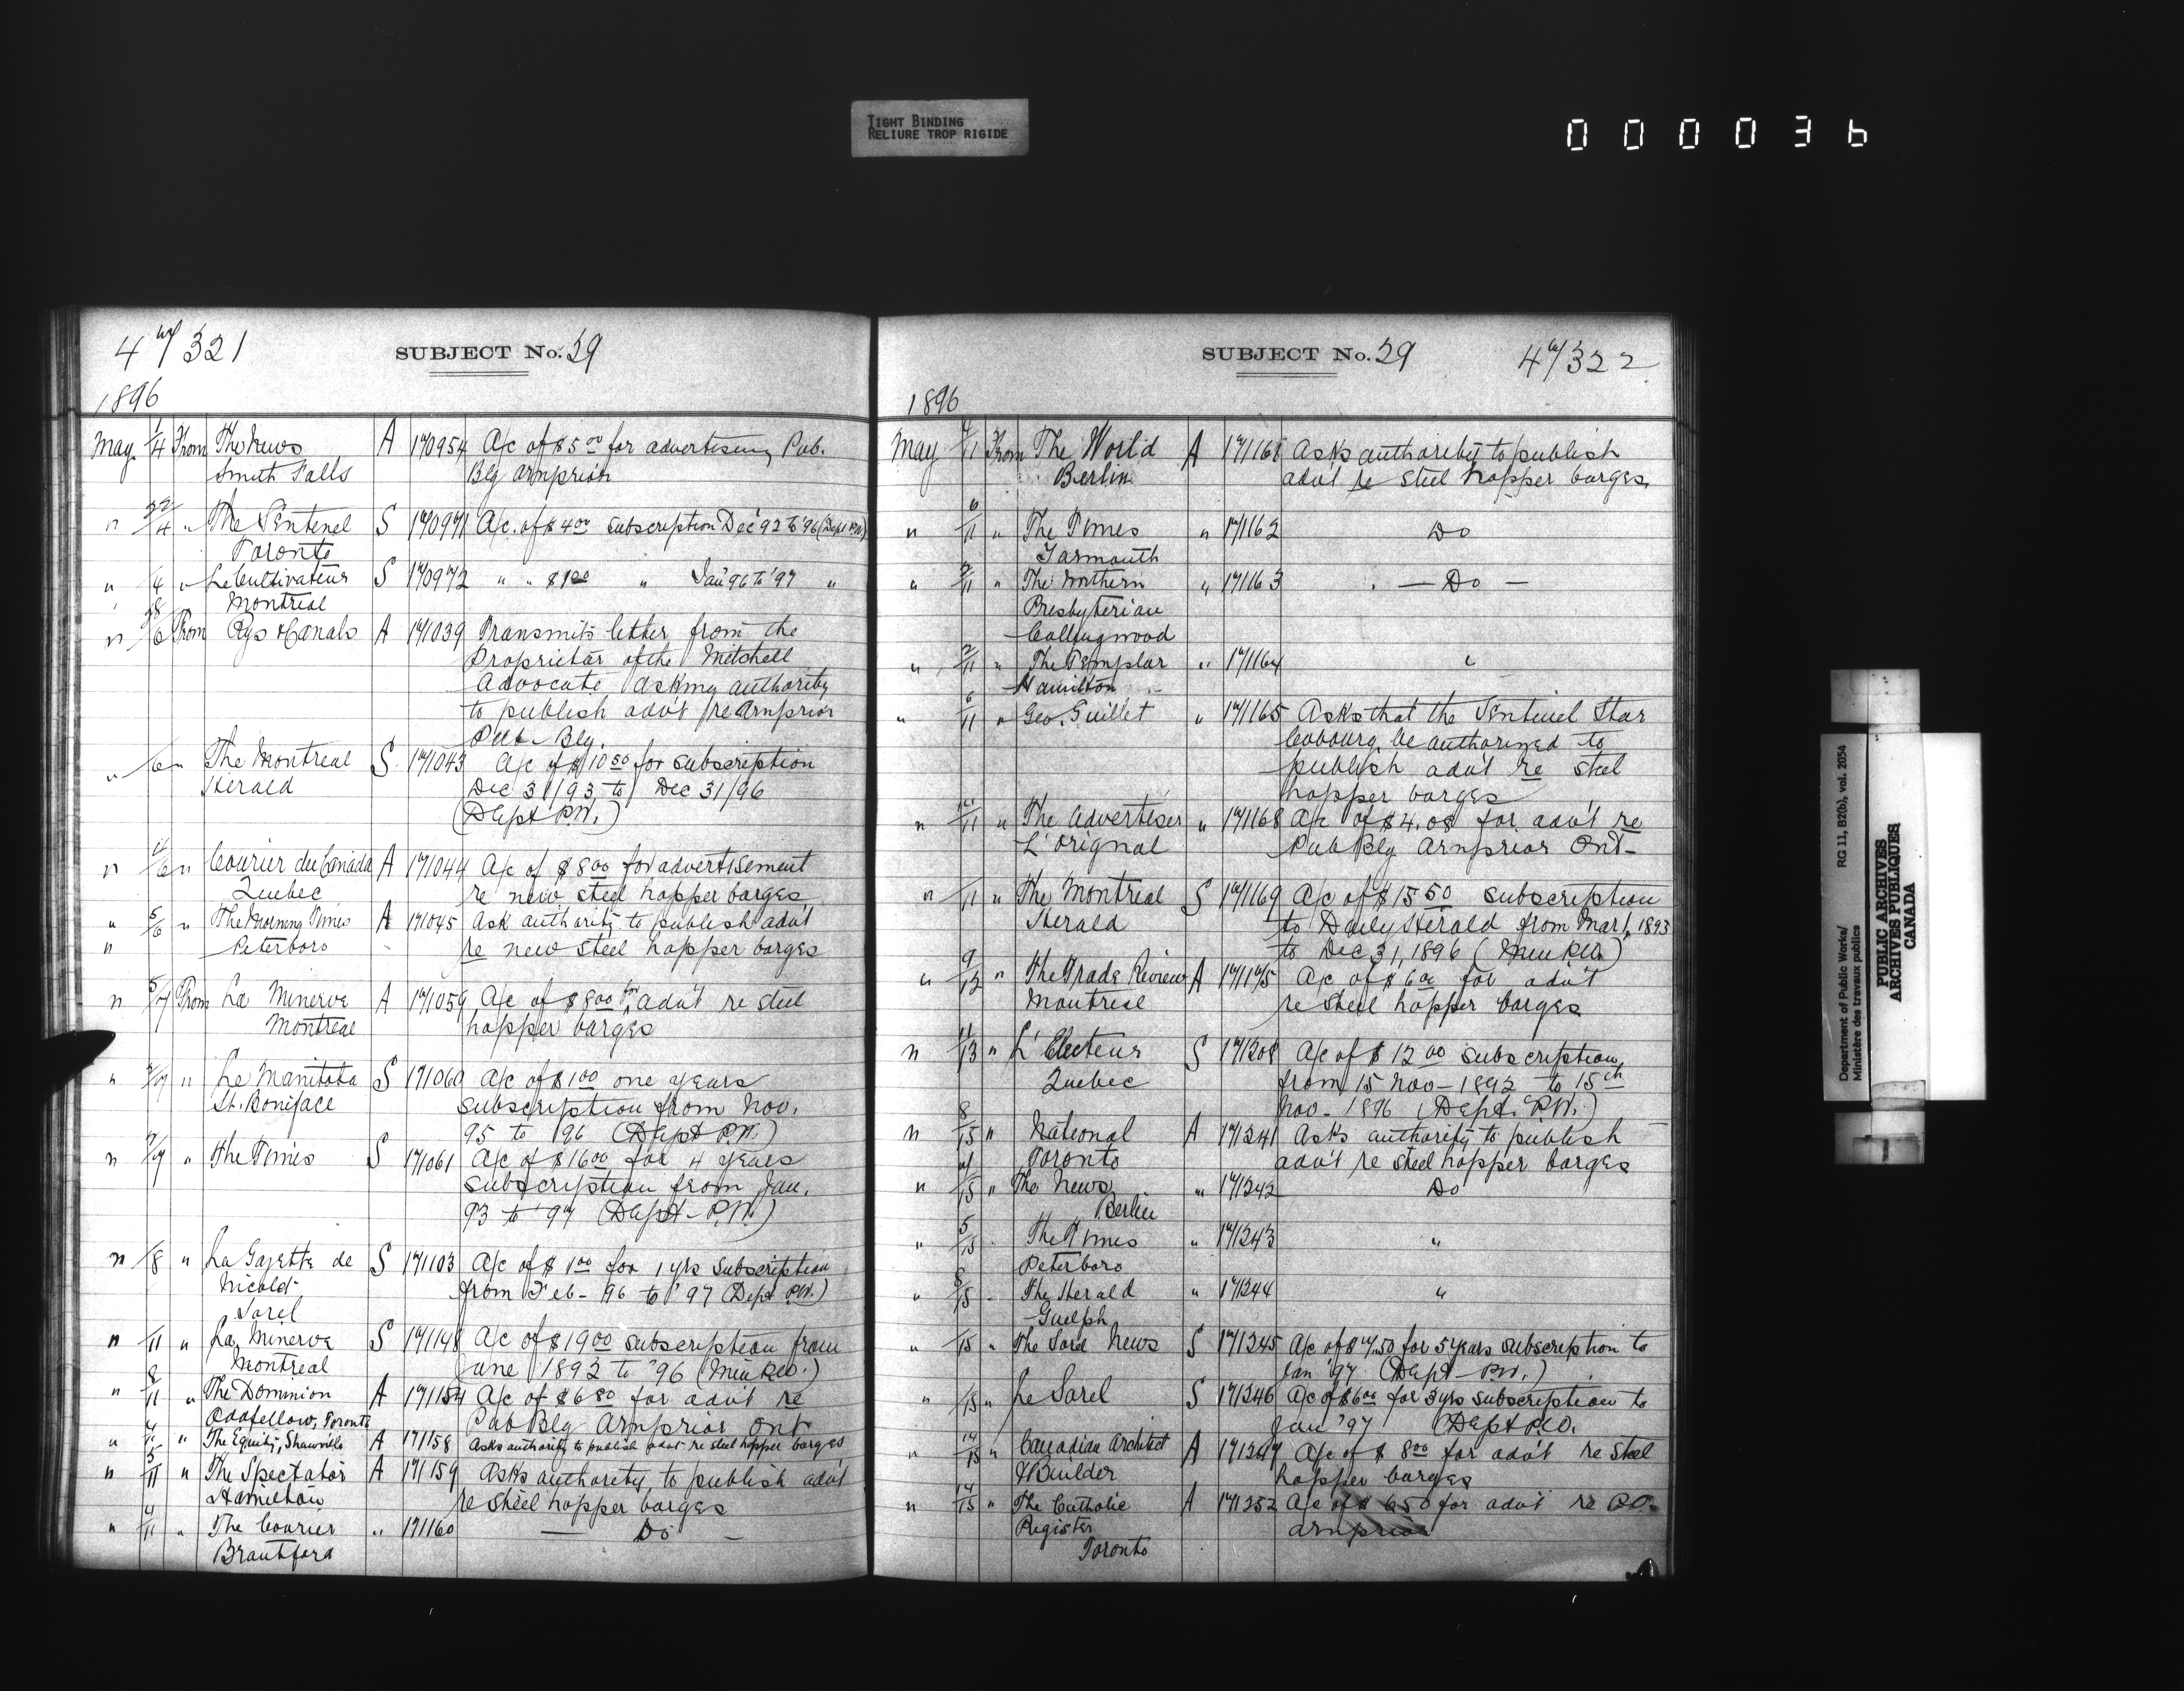 TIGHT BINDING
RELIURE TROP RIGIDE
000036
47321
SUBJECT No. 29
1896
May 1/4 From The News A 170954 A/c of $5.00 for advertising Pub.
Smith Falls Bldg Arnprior
" 22/4 " The Sentinel S 170971 A/c. of $4.00 subscription Dec '92 to '96 (Dept P.W.)
Toronto
" /4 " Le Cultivateur S 170972 " " $1.00 " Jan '96 to '97 "
Montreal
" 28/6 From Rys & Canals A 171039 Transmits letter from the
Proprietor of the Mitchell
Advocate asking authority
to publish adv't re Arnprior
Pub. Bldg.
" /6 " The Montreal S. 171043 A/c of $10.50 for subscription
Herald Dec 31/93 to Dec 31/96
(Dept P.W.)
" 4/6 " Courier du Canada A 171044 A/c of $8.00 for advertisement
Quebec re new steel hopper barges
" 5/6 " The Morning Times A 171045 Ask authority to publish adv't
" Peterboro re new steel hopper barges
" 5/7 From La Minerve A 171059 A/c of $8.00 for adv't re steel
Montreal hopper barges
" /7 " Le Manitoba S 171060 A/c of $1.00 one years
St. Boniface subscription from Nov.
95 to '96 (Dept P.W.)
" 7/7 " The Times S 171061 A/c of $16.00 for 4 years
subscription from Jan.
93 to '97 (Dept - P.W.)
" /8 " La Gazette de S 171103 A/c of $1.00 for 1 yrs subscription
Nicolet from Feb - 96 to '97 (Dept P.W.)
Sorel
" /11 " La Minerve S 171148 A/c of $19.00 subscription from
Montreal June 1892 to '96 (Min P.W.)
" 8/11 " The Dominion A 171154 A/c of $6.80 for adv't re
Oddfellow, Toronto Pub Bldg Arnprior Ont
" 4/11 " The Equity, Shawville A 171158 Asks authority to publish adv't re steel hopper barges
" 5/11 " The Spectator A 171159 Asks authority to publish adv't
Hamilton re steel hopper barges
" 4/11 " The Courier " 171160 — Do —
Brantford
SUBJECT No. 29
47322
1896
May 7/11 From The World A 171161 Asks authority to publish
Berlin adv't re steel hopper barges,
" 6/11 " The Times " 171162 Do
Yarmouth
" 2/11 " The Northern " 171163 — Do —
Presbyterian
Collingwood
" 2/11 " The Templar " 171164 "
Hamilton
" 6/11 " Geo. Guillet " 171165 Asks that the Sentinel Star
Cobourg, be authorized to
publish adv't re steel
hopper barges
" /11 " The Advertiser " 171168 A/c of $4.08 for adv't re
L'Orignal Pub Bldg Arnprior Ont-
" /11 " The Montreal S 171169 A/c of $15.50 subscription
Herald to Daily Herald from Mar 1, 1893
to Dec 31, 1896 (Min P.W.)
" 9/12 " The Trade Review A 171175 A/c of $6.00 for adv't
Montreal re steel hopper barges
" 11/13 " L'Electeur S 171208 A/c of $12.00 subscription
Quebec from 15 Nov - 1892 to 15th
Nov - 1896 (Dept. P.W.)
" 8/15 " National A 171241 Asks authority to publish
Toronto adv't re steel hopper barges
" 7/15 " The News " 171242 Do
Berlin
" 5/15 The Times " 171243 "
Peterboro
" 8/15 The Herald " 171244 "
Guelph
" /15 " The Sorel News S 171245 A/c of $7.50 for 5 years subscription to
Jan '97 (Dept - P.W.)
" /15 " Le Sorel S 171246 A/c of $6.00 for 3 yrs subscription to
Jan '97 (Dept P.W.
" 14/15 " Canadian Architect A 171247 A/c of $8.00 for adv't re steel
& Builder hopper barges
" 14/15 " The Catholic A 171252 A/c of $6.50 for adv't re P.O.
Register Arnprior
Toronto
Department of Public Works/ RG 11, B2(b), vol. 2054
Ministère des travaux publics
PUBLIC ARCHIVES
ARCHIVES PUBLIQUES
CANADA